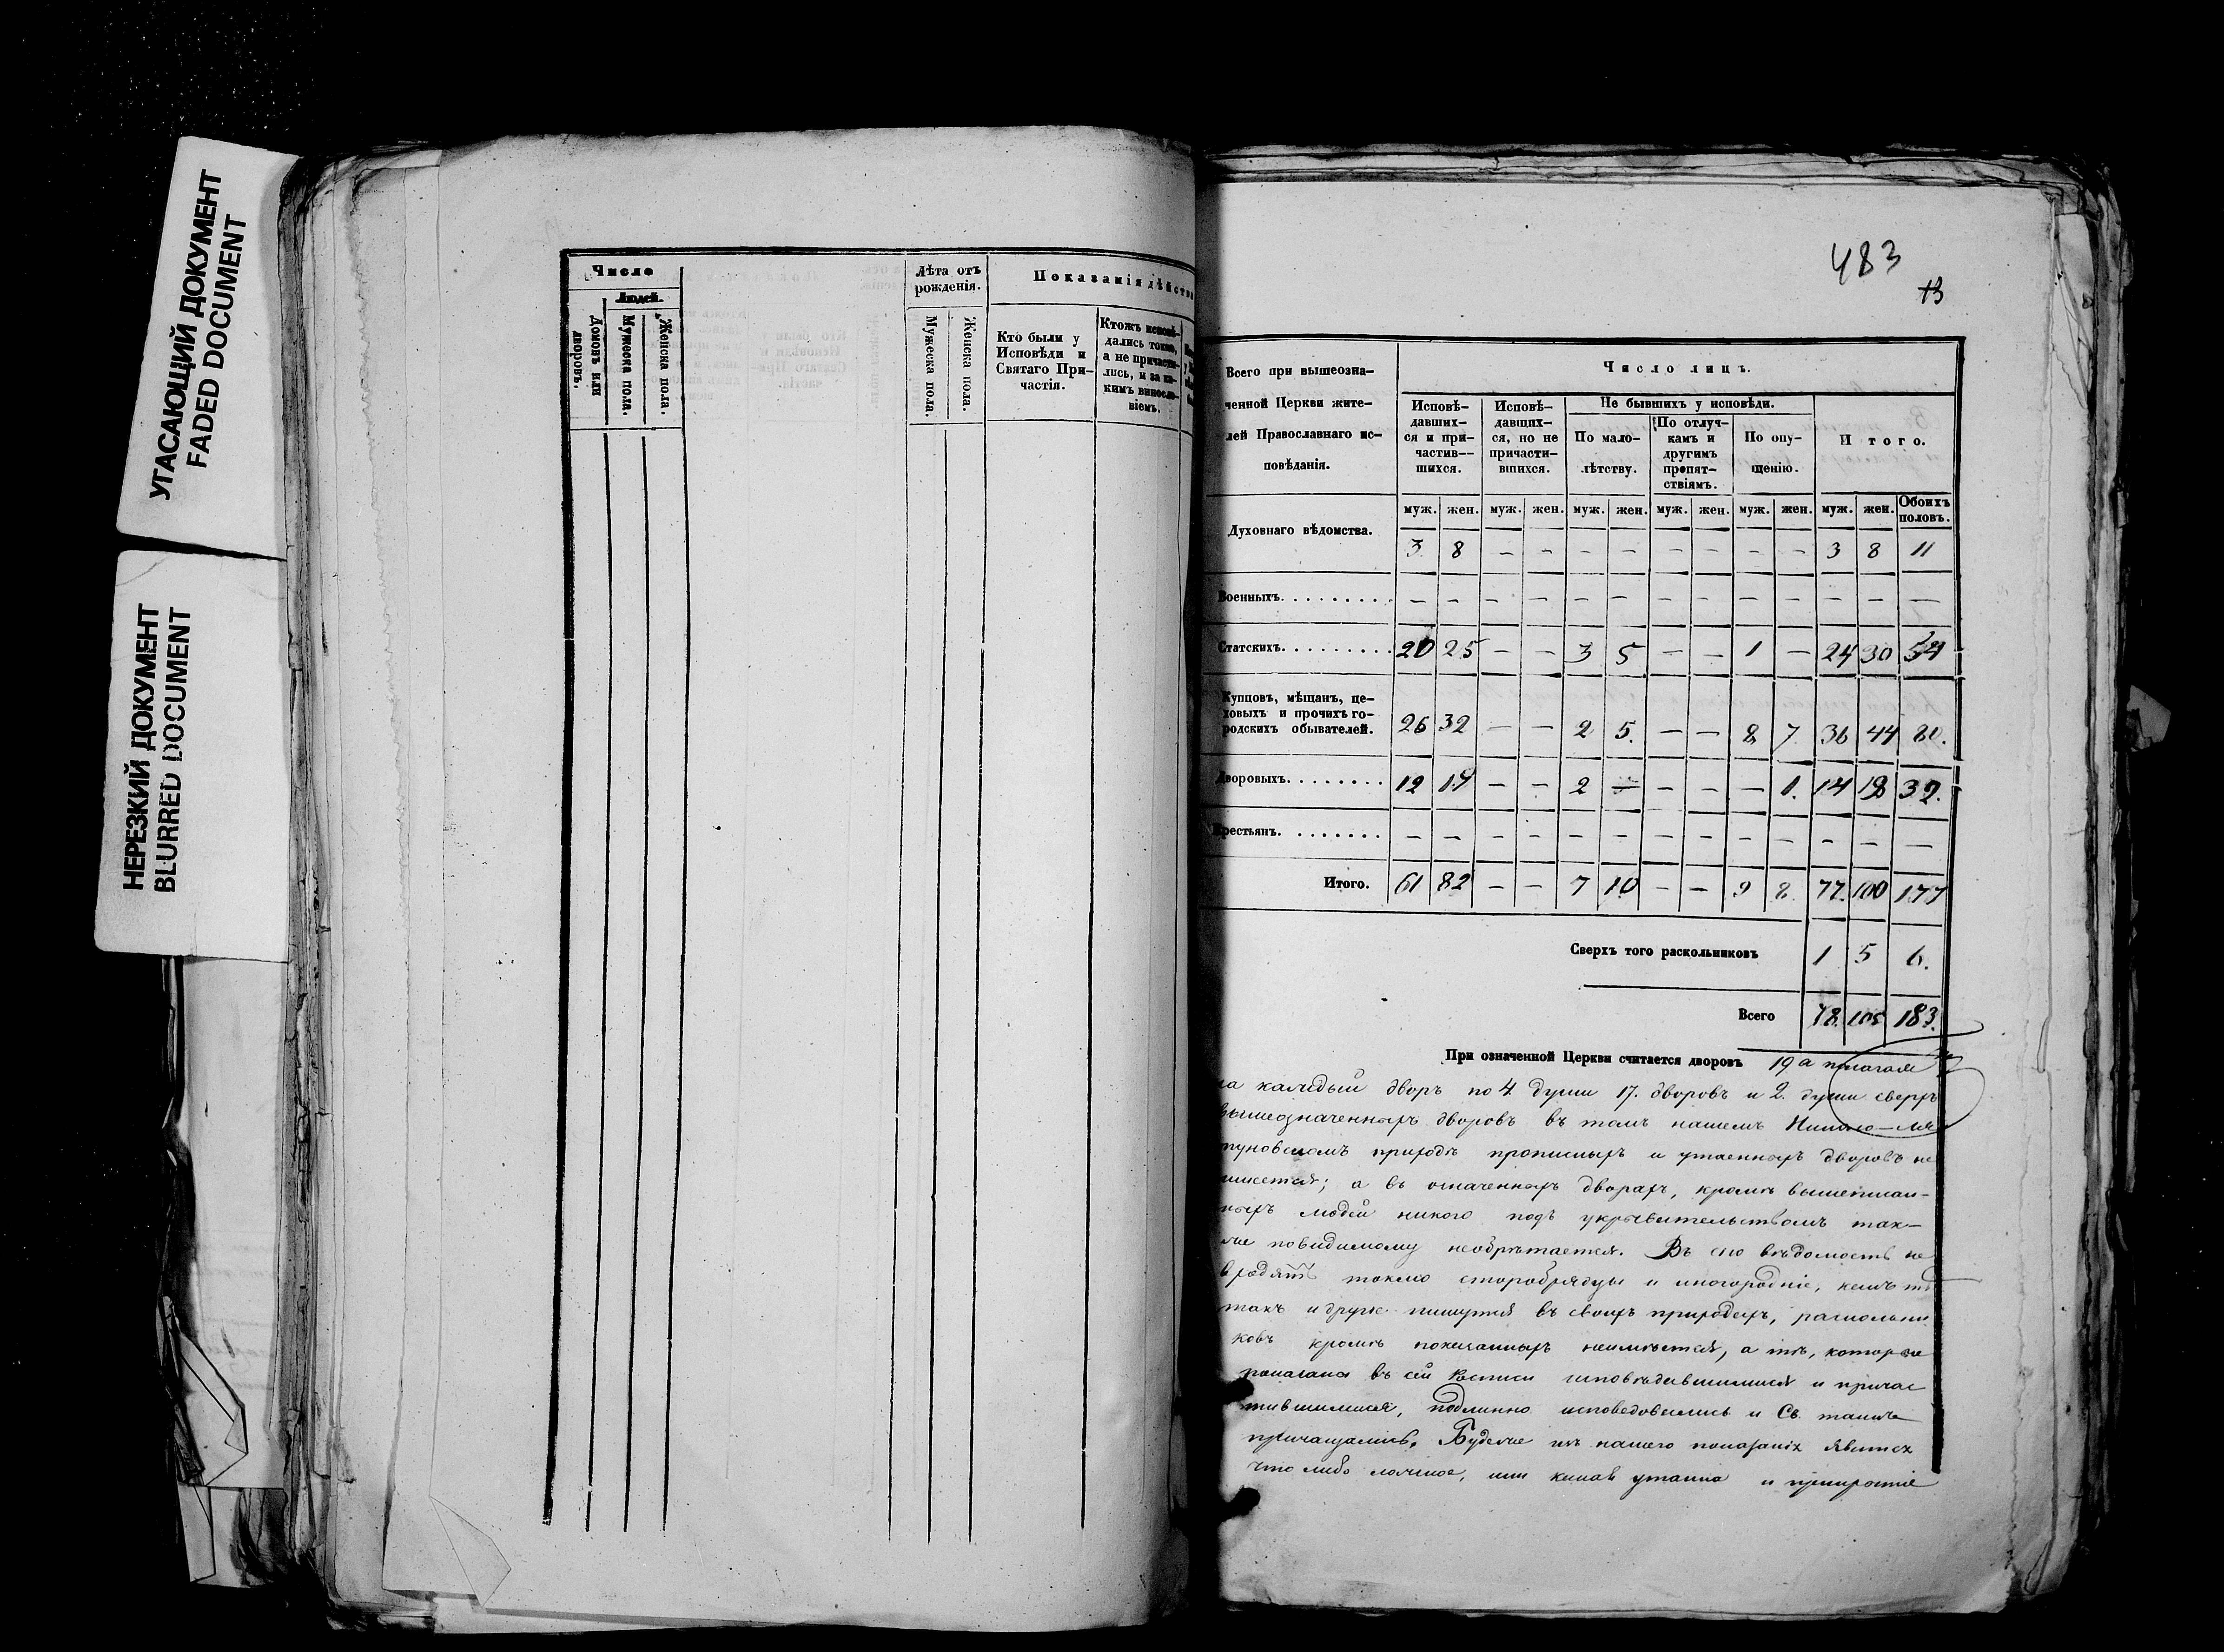 УГАСАЮЩИЙ ДОКУМЕНТ
FADED DOCUMENT
НЕРЕЗКИЙ ДОКУМЕНТ
BLURRED DOCUMENT
Число
Людей.
Домовъ или дворовъ.
Мужеска пола.
Женска пола.
Лѣта отъ
рожденія.
Мужеска пола.
Женска пола.
Показанія дѣйства
Кто были у
Исповѣди и
Святаго При-
частія.
Ктожъ исповѣ-
дались токмо,
а не причасти-
лись, и за ка-
кимъ винословіемъ.
483
13
Всего при вышеозна-
ченной Церкви жите-
лей Православнаго ис-
повѣданія.
Число лицъ.
Исповѣ-
давших-
ся и при-
частив-
шихся.
Исповѣ-
давших-
ся, но не
причасти-
вшихся.
Не бывшихъ у исповѣди.
По мало-
лѣтству.
По отлуч-
камъ и
другимъ
препят-
ствіямъ.
По опу-
щенію.
Итого.
муж. жен. муж. жен. муж. жен. муж. жен. муж. жен. муж. жен. Обоихъ половъ.
Духовнаго вѣдомства. 3 8 – – – – – – – – 3 8 11
Военныхъ. – – – – – – – – – – – – –
Статскихъ. 20 25 – – 3 5 – – 1 – 24 30 54
Купцовъ, мѣщанъ, це-
ховыхъ и прочихъ го-
родскихъ обывателей. 26 32 – – 2 5. – – 8 7. 36 44 80.
Дворовыхъ. 12 17 – – 2 – – – – 1. 14 18 32.
Крестьянъ. – – – – – – – – – – – – –
Итого. 61 82 – – 7 10 – – 9 8. 77. 100 177
Сверхъ того раскольниковъ 1 5 6.
Всего 78. 105 183.
При означенной Церкви считается дворовъ 19 а полагая
на каждый дворъ по 4 души 17. дворовъ и 2. души сверхъ
вышеозначенныхъ дворовъ въ томъ нашемъ
приходѣ прописныхъ и утаенныхъ дворовъ не
имеется; а въ означенныхъ дворахъ, кромѣ вышеписан-
ныхъ людей никого подъ укрывательствомъ так-
же повидимому необрѣтается. Въ сію вѣдомость не
входятъ токмо старобрядцы и иногородніе,
какъ и другіе пишутся въ своихъ приходахъ, раскольни
ковъ кромѣ показанныхъ неимѣется, а тѣ, которые
показаны въ сей Росписи исповѣдавшимися и причас
тившимися, подлинно исповедовались и Св. таинъ
причащались. Буде же изъ нашего показанія явится
что либо ложное, или какая утайка и